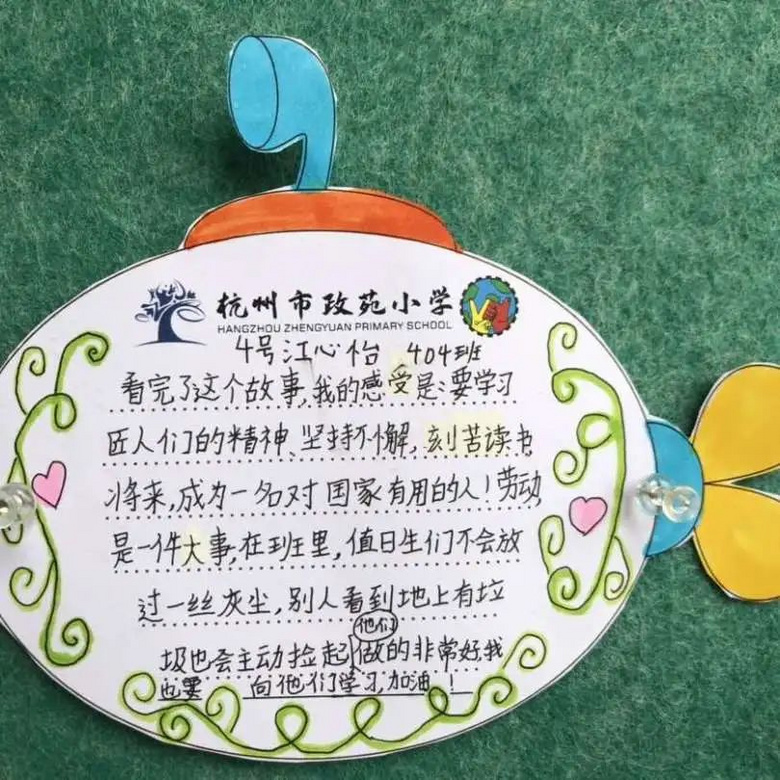 杭州市政苑小学
HANGZHOU ZHENGYUAN PRIMARY SCHOOL
4号江心怡 404班
看完了这个故事,我的感受是:要学习
匠人们的精神、坚持不懈,刻苦读书
将来,成为一名对国家有用的人!劳动
是一件大事,在班里,值日生们不会放
过一丝灰尘,别人看到地上有垃
圾也会主动捡起他们做的非常好,我
也要向他们学习,加油!